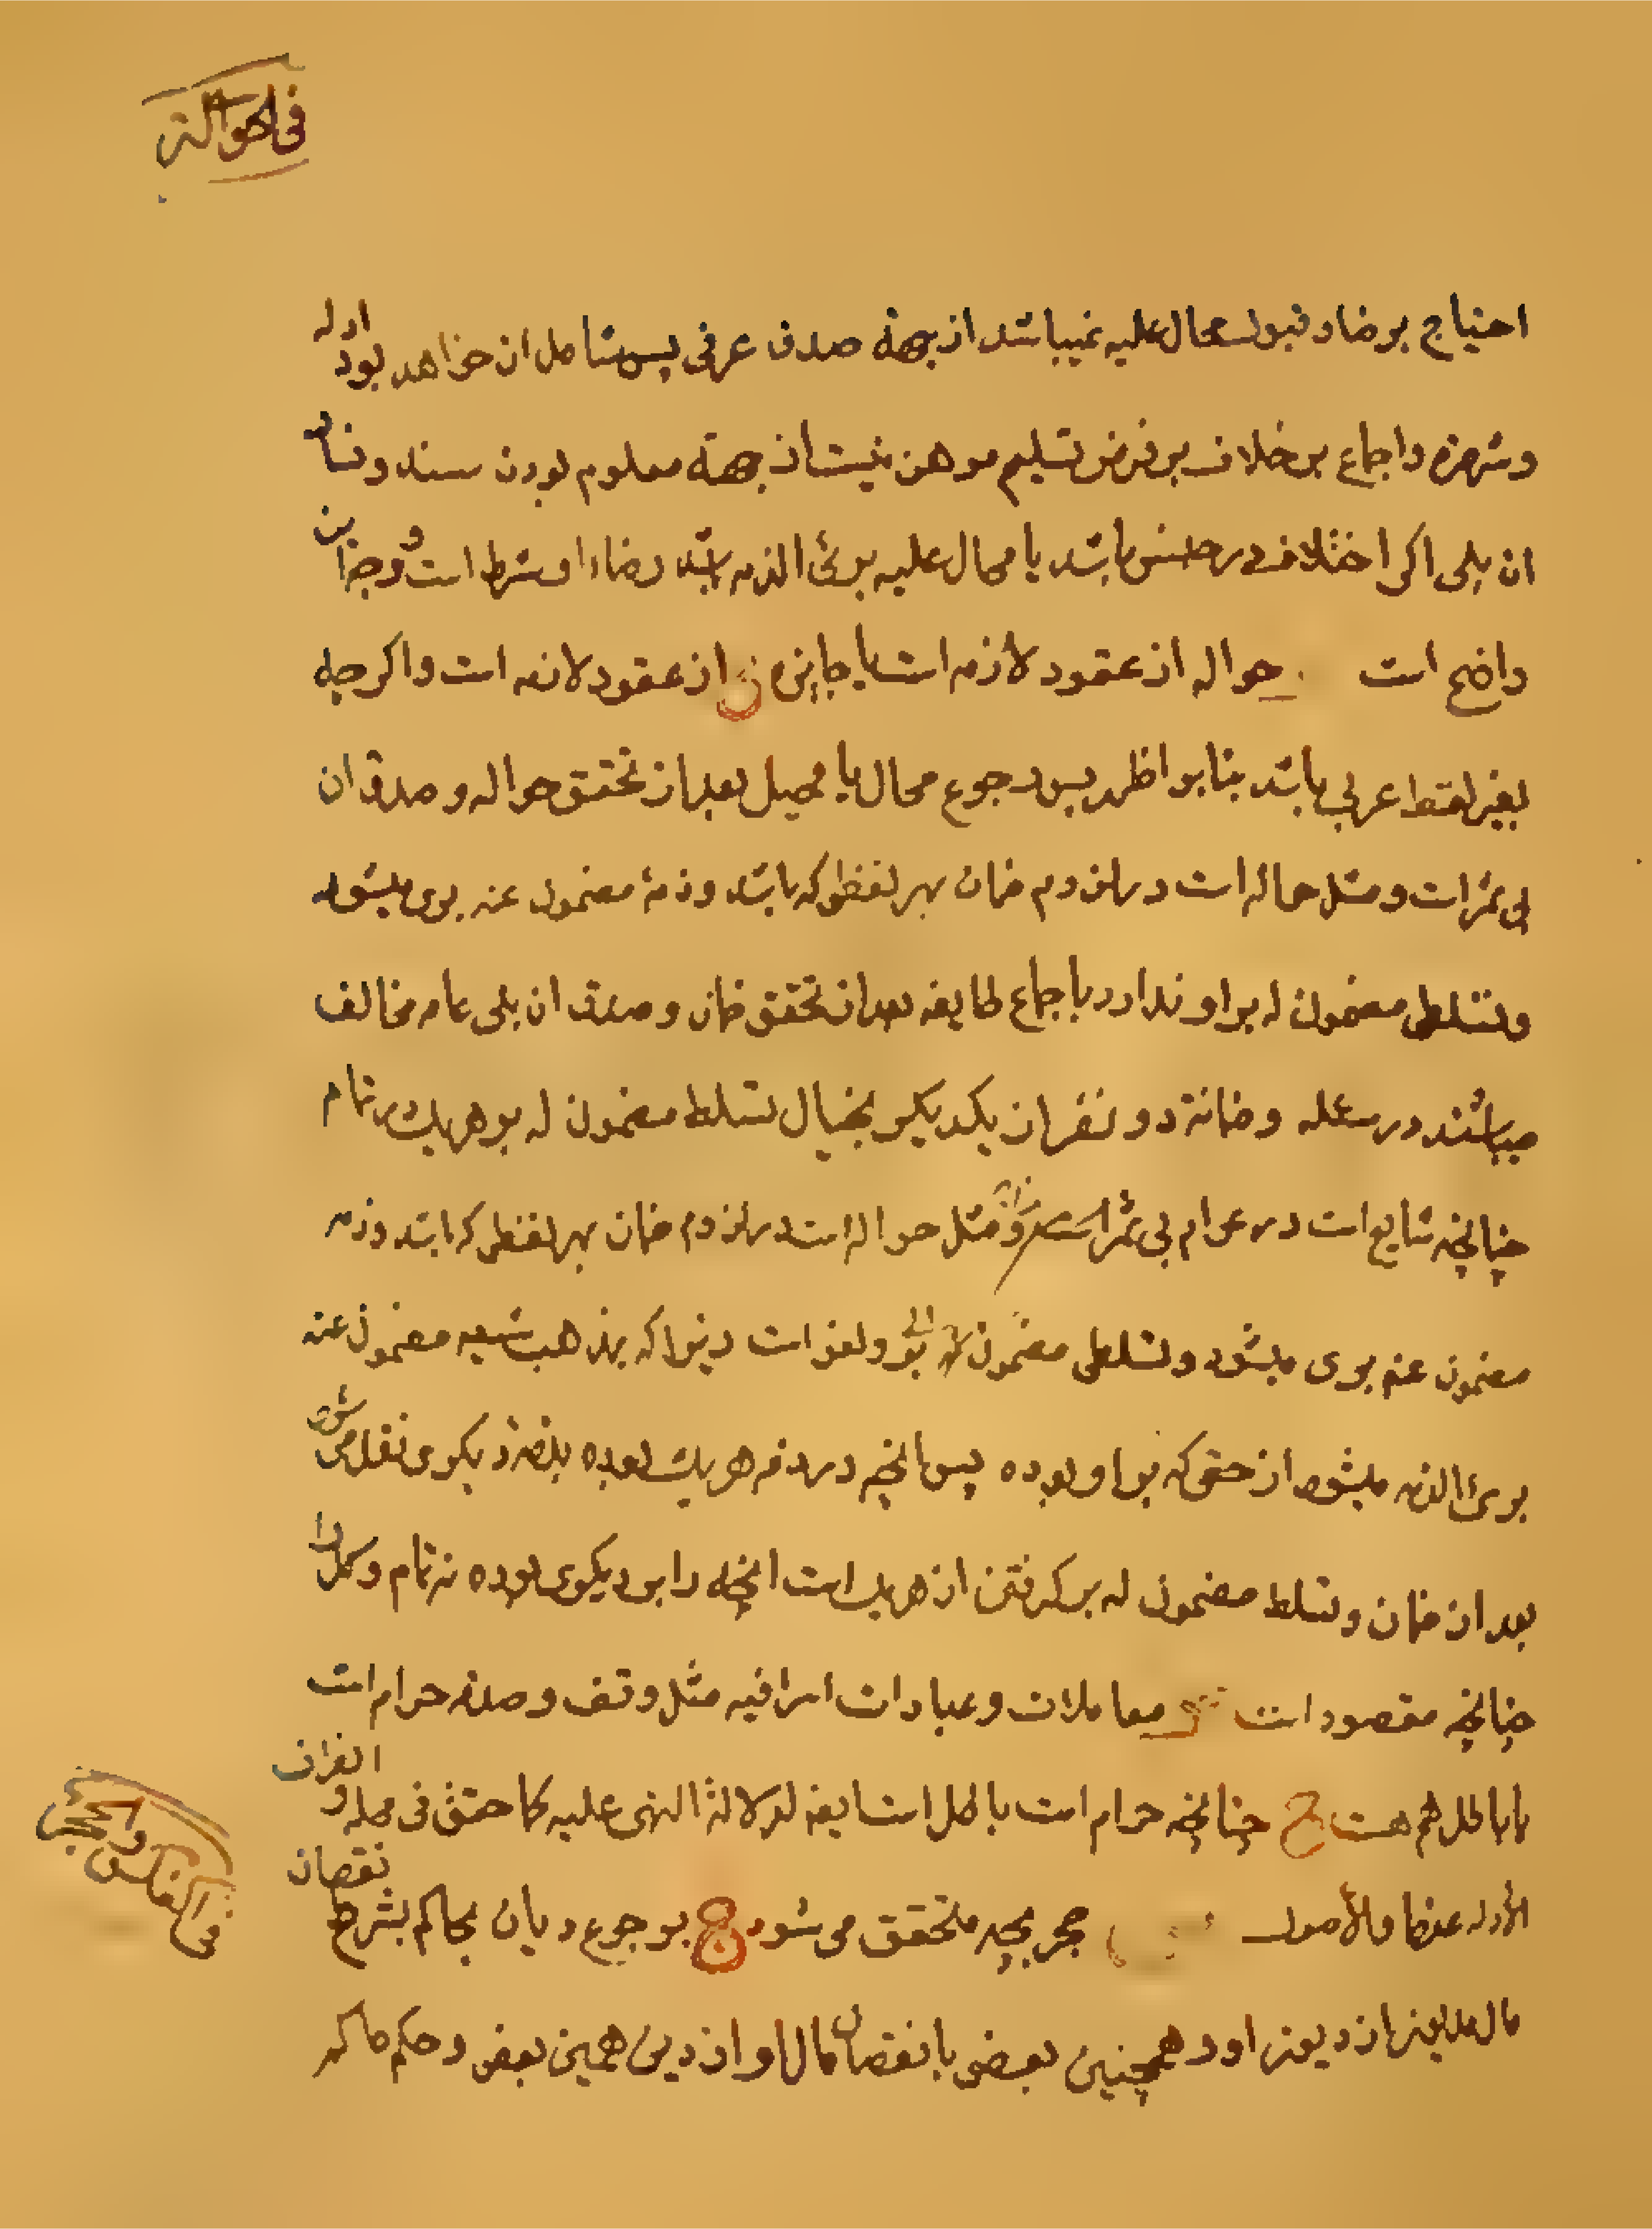 فی الحوالة
احتیاج برضا و قبول محال علیه نمیباشد از جهة صدق عرفی پس شامل ان خواهد بود ادله
و شهرة و اجماع بر خلاف بر فرض تسلیم موهن نیست از جهة معلوم بودن سند و فساد
ان بلی اکر اختلاف در جنس باشد یا محال علیه برئ الذمه باشد رضاء او شرط است و وجه این
واضح است حواله از عقود لازمه است یا جایزه ج از عقود لازمه است و اکر چه
بغیر لفظ عربی باشد بنا بر اظهر پس رجوع محال یا محیل بعد از تحقق حواله و صدق ان
بی ثمر است و مثل حواله است در لزوم ضمان بهر لفظی که باشد و ذمهٔ مضمون عنه بری میشود
و تسلطی مضمون له بر او ندارد باجماع طایفه بعد از تحقق ضمان و صدق ان بلی عامه مخالف
میباشند در مسئله و ضمانة دو نفر از یکدیکر بخیال تسلط مضمون له بر هر یک در تمام
چنانچه شایع است در عوام بی ثمر است و مثل حواله است در لزوم ضمان بهر لفظی که باشد و ذمه
مضمون عنه بری میشود و تسلطی مضمون و لغو است زیرا که بمذهب شیعه مضمون عنه
برئ الذمه میشود از حقی که بر او بوده پس انچه در ذمه هر یک بوده بذمهٔ دیکری نقل می شود
بعد از ضمان و تسلط مضمون له بر کرفتن از هر یک است انچه را بر دیکری بوده نه تمام و کل را
چنانچه مقصود است معاملات و عبادات اسرافیه مثل وقف و صدقه حرام است
یا باطل هم هست ج چنانچه حرام است باطل است ایضا لدلالة النهی علیه کما حقق فی محله و
الأدله عندنا والأصول حجر بچه متحقق می شود ج برجوع دیان بحاکم بشرط نقصان
مال مدیون از دیون او و همچنین بعضی با نقصان مال او از دین همین بعض و حکم حاکم
فی الفلس والحجر